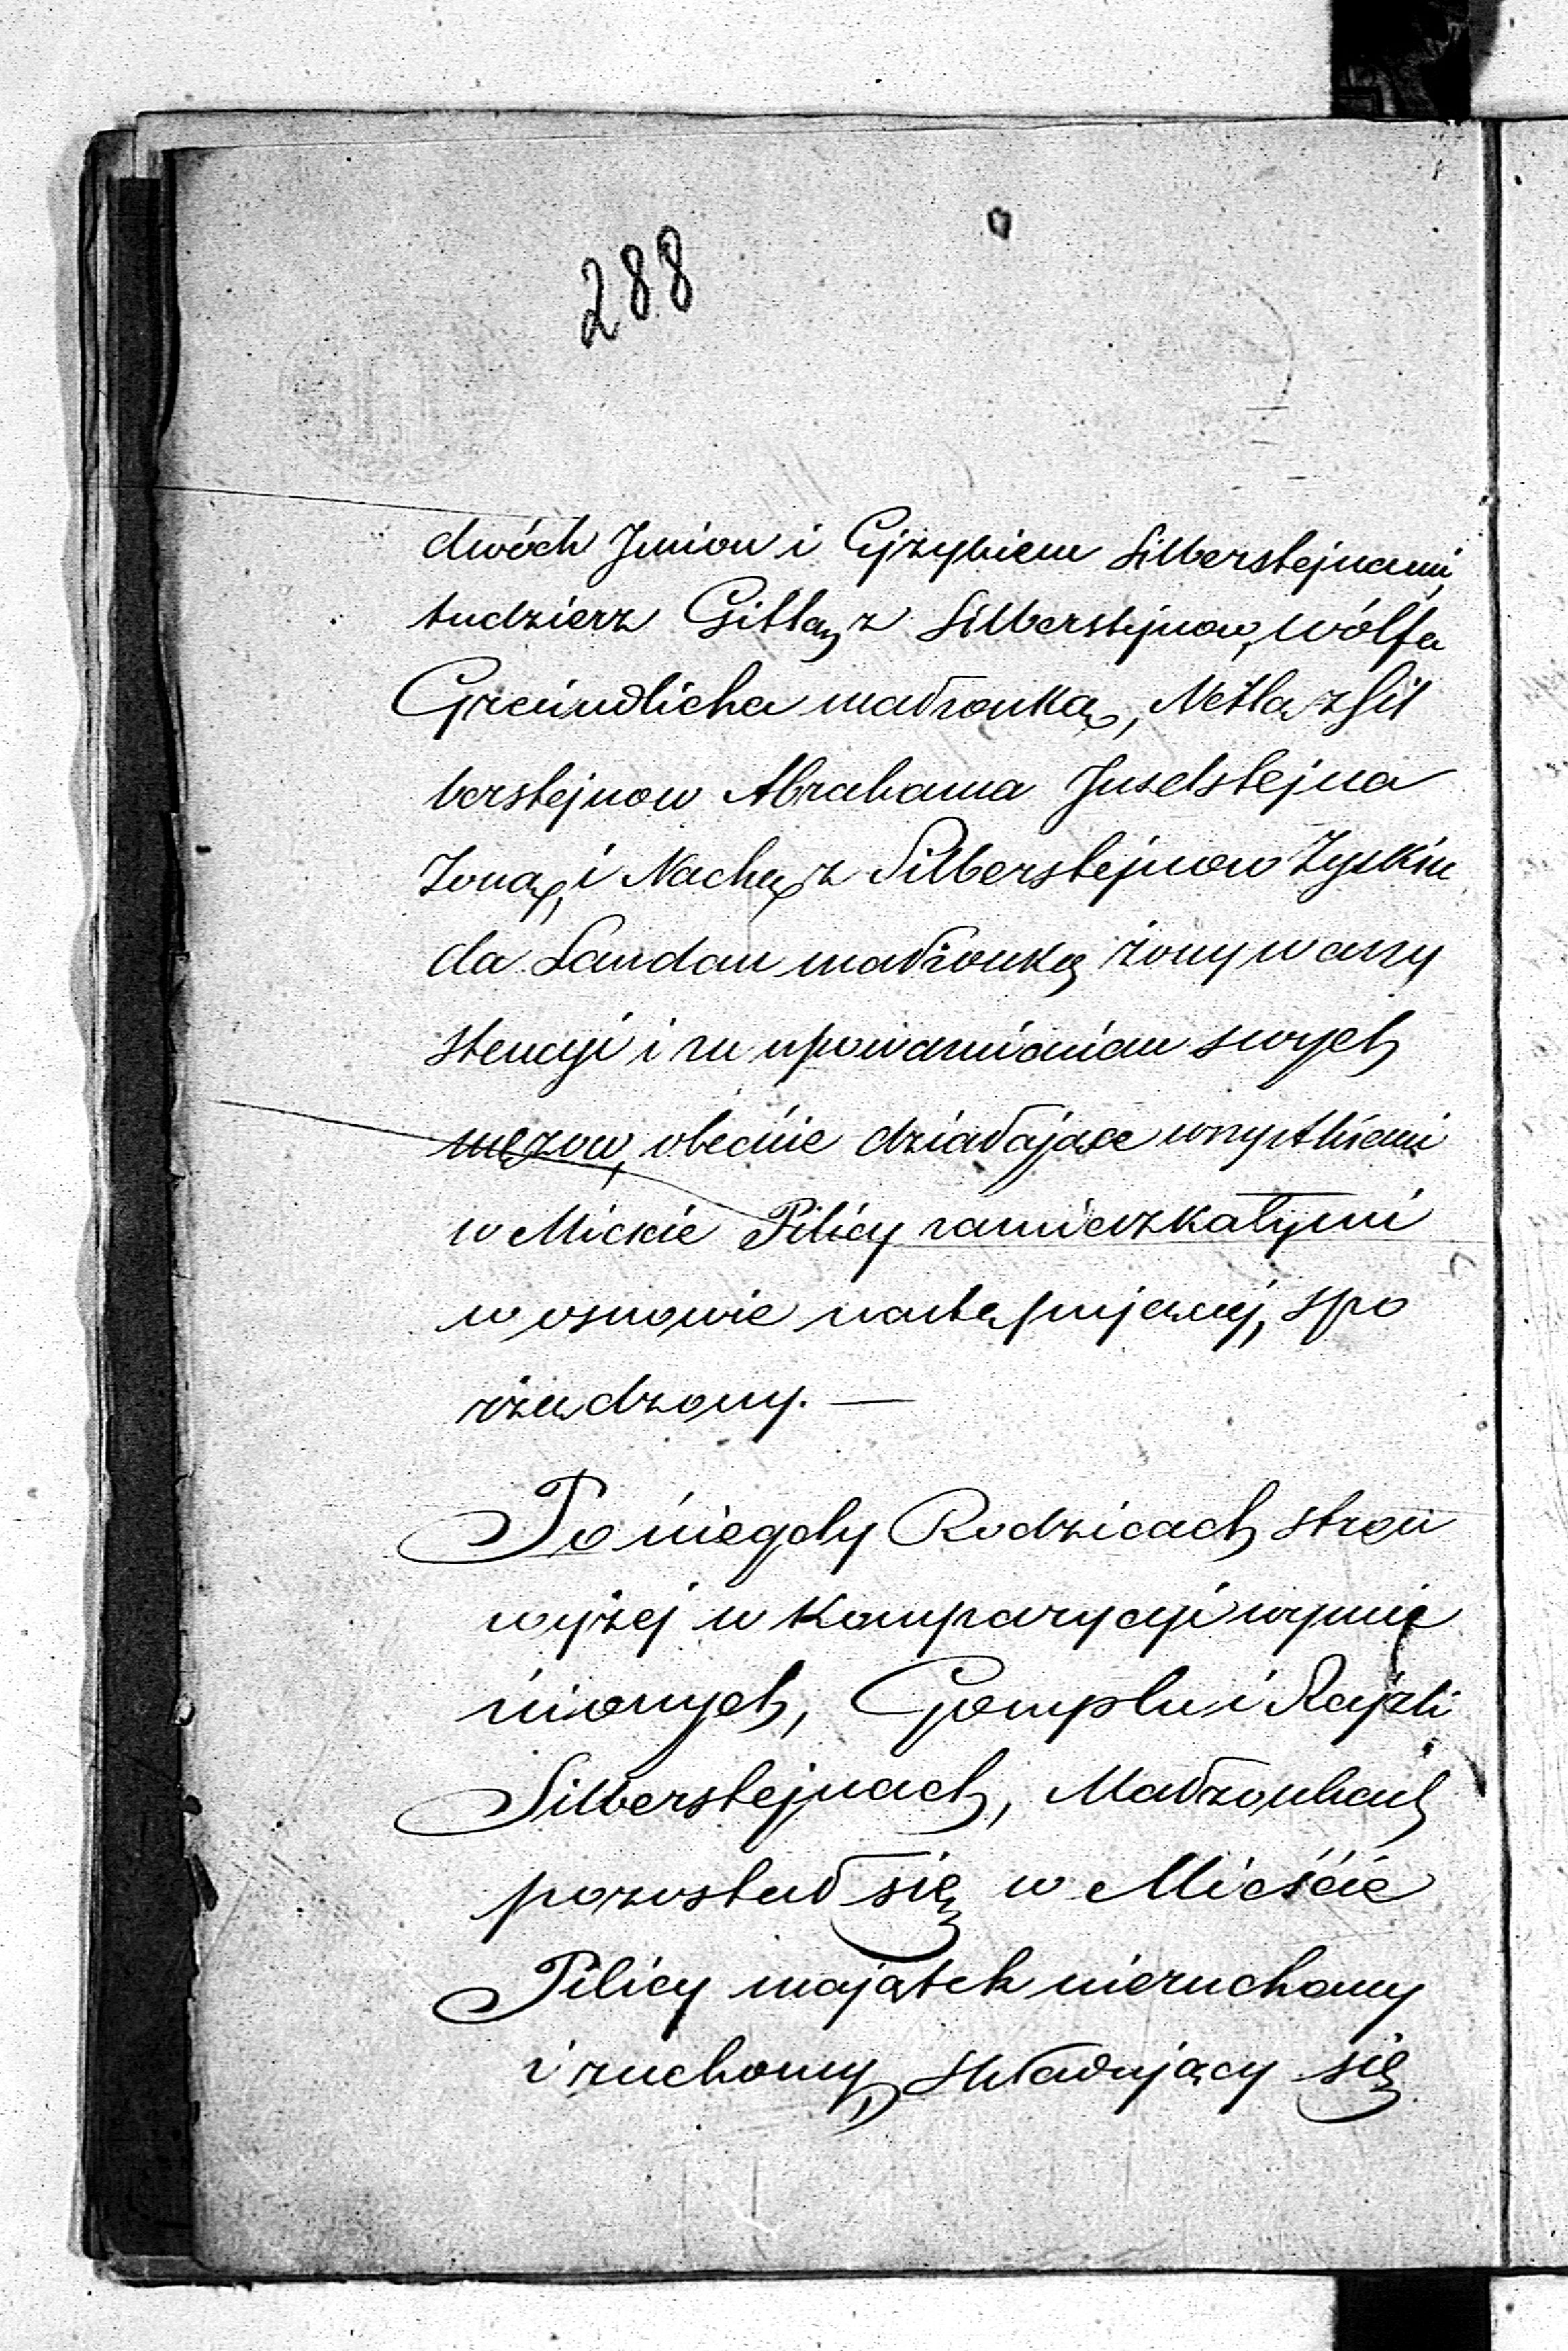 288
dwóch Imion i Ejzykiem Silberstejnami,
tudzierz Gitlą z Silberstejnow, Wólfa
Freindlicha małżonką, Netlą z Sil
berstejnow Abrahama Juselstejna
Żoną, i Nachą z Silberstejnow Zyskin
da Landau małżonką żony w assy
stencyi i za upoważnieniem swych
mężow, obecnie działające wszystkiemi
w Mieście Pilicy zamieszkałymi
w osnowie następującej, spo
rządzony. —
Po niegdy Rodzicach stron
wyżej w komparycyi wymie
nionych, Gomplu i Rajzli
Silberstejnach, Małżonkach
pozostał się w Mieście
Pilicy majątek nieruchomy
i ruchomy, składający się